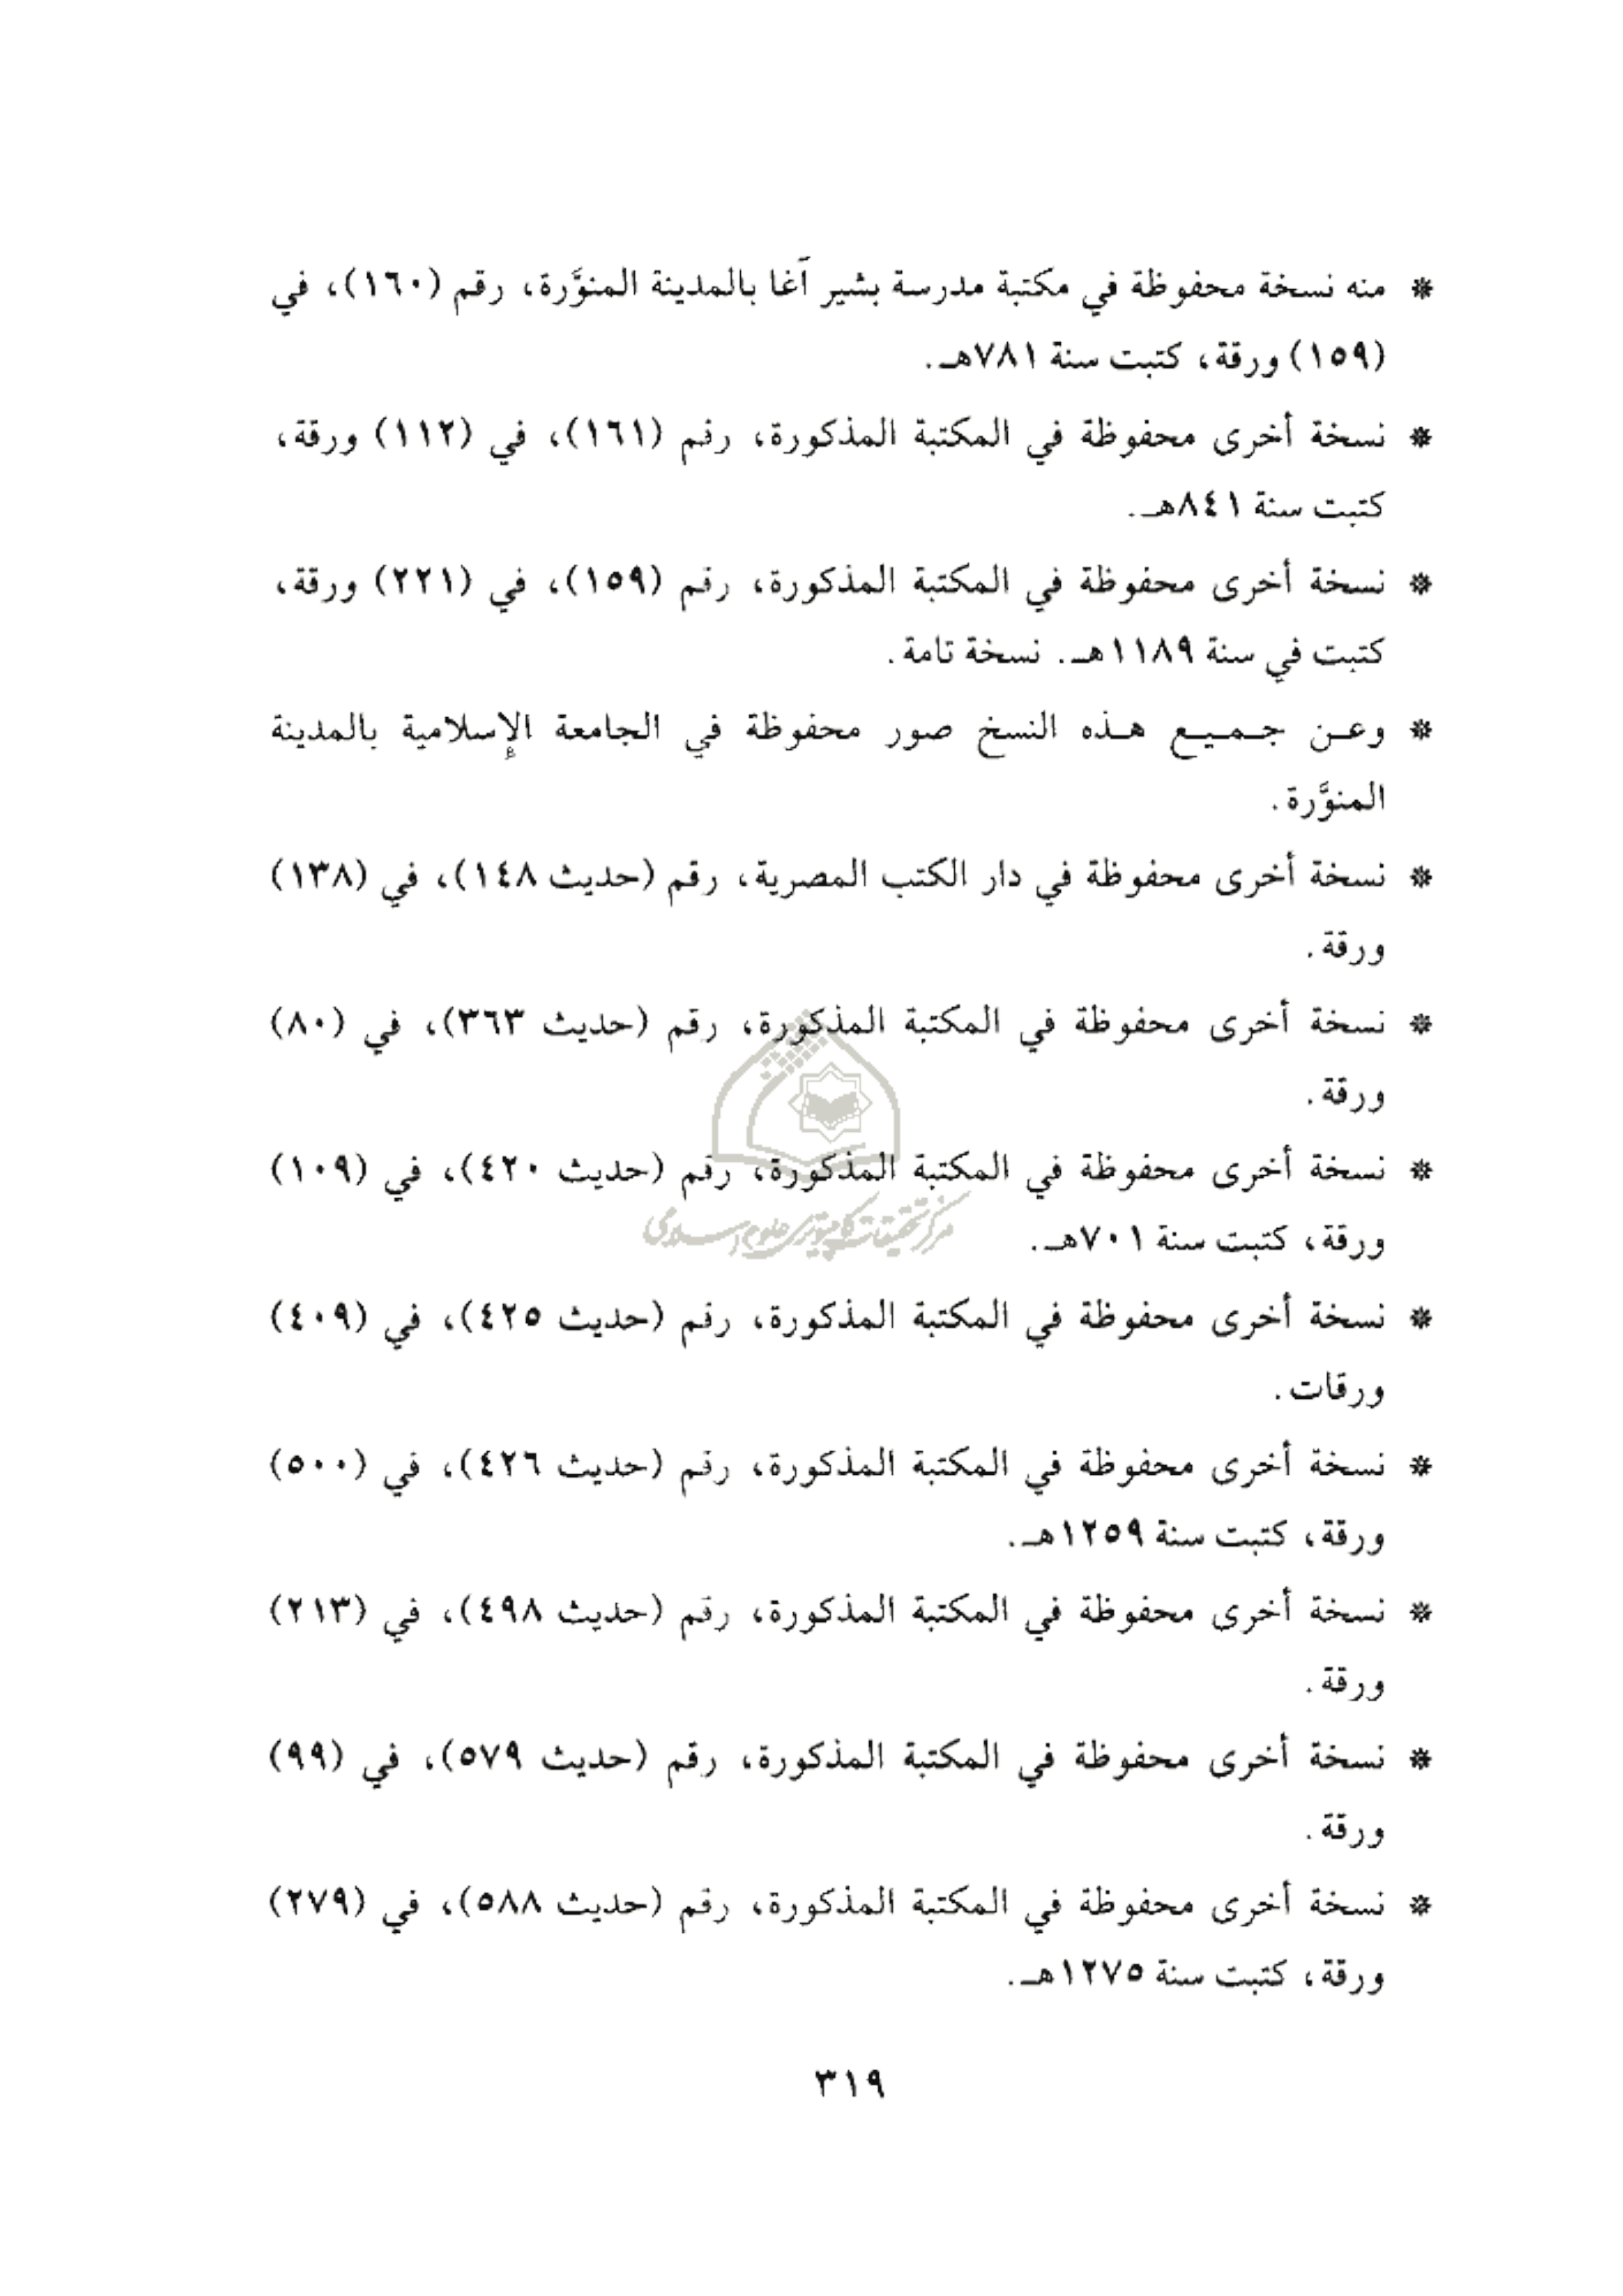 * منه نسخة محفوظة في مكتبة مدرسة بشير آغا بالمدينة المنوَّرة، رقم (١٦٠)، في
(١٥٩) ورقة، كتبت سنة ٧٨١هـ.
* نسخة أخرى محفوظة في المكتبة المذكورة، رقم (١٦١)، في (١١٢) ورقة،
كتبت سنة ٨٤١هـ.
* نسخة أخرى محفوظة في المكتبة المذكورة، رقم (١٥٩)، في (٢٢١) ورقة،
كتبت في سنة ١١٨٩هـ. نسخة تامة.
* وعـن جـمـيـع هـذه النسخ صور محفوظة في الجامعة الإسلامية بالمدينة
المنوَّرة.
* نسخة أخرى محفوظة في دار الكتب المصرية، رقم (حديث ١٤٨)، في (١٣٨)
ورقة.
* نسخة أخرى محفوظة في المكتبة المذكورة، رقم (حديث ٣٦٣)، في (٨٠)
ورقة.
* نسخة أخرى محفوظة في المكتبة المذكورة، رقم (حديث ٤٢٠)، في (١٠٩)
ورقة، كتبت سنة ٧٠١هـ.
مركز تحقيقات كامپيوترى علوم اسلامى
* نسخة أخرى محفوظة في المكتبة المذكورة، رقم (حديث ٤٢٥)، في (٤٠٩)
ورقات.
* نسخة أخرى محفوظة في المكتبة المذكورة، رقم (حديث ٤٢٦)، في (٥٠٠)
ورقة، كتبت سنة ١٢٥٩هـ.
* نسخة أخرى محفوظة في المكتبة المذكورة، رقم (حديث ٤٩٨)، في (٢١٣)
ورقة.
* نسخة أخرى محفوظة في المكتبة المذكورة، رقم (حديث ٥٧٩)، في (٩٩)
ورقة.
* نسخة أخرى محفوظة في المكتبة المذكورة، رقم (حديث ٥٨٨)، في (٢٧٩)
ورقة، كتبت سنة ١٢٧٥هـ.
٣١٩